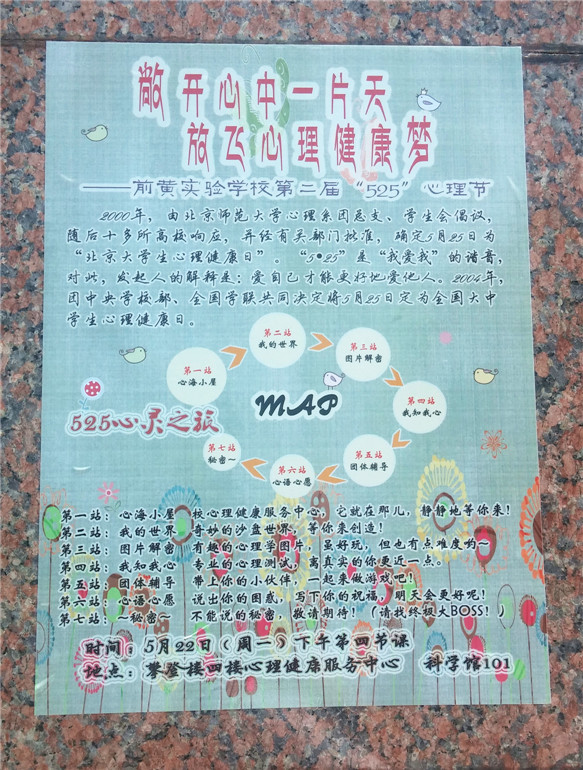 敞开心中一片天
放飞心理健康梦
——前黄实验学校第二届“525”心理节
2000年，由北京师范大学心理系团总支、学生会倡议，
随后十多所高校响应，并经有关部门批准，确定5月25日为
“北京大学生心理健康日”。“5•25”是“我爱我”的谐音，
对此，发起人的解释是：爱自己才能更好地爱他人。2004年，
团中央学校部、全国学联共同决定将5月25日定为全国大中
学生心理健康日。
第一站
心海小屋
第二站
我的世界
第三站
图片解密
第四站
我知我心
第五站
团体辅导
第六站
心语心愿
第七站
秘密~
MAP
525心灵之旅
第一站：心海小屋 校心理健康服务中心，它就在那儿，静静地等你来！
第二站：我的世界 奇妙的沙盘世界，等你来创造！
第三站：图片解密 有趣的心理学图片，虽好玩，但也有点难度哟~
第四站：我知我心 专业的心理测试，离真实的你更近一点。
第五站：团体辅导 带上你的小伙伴，一起来做游戏吧！
第六站：心语心愿 说出你的困惑，写下你的祝福，明天会更好呢！
第七站：~秘密~ 不能说的秘密，敬请期待！（请找终极大BOSS！）
时间：5月22日（周一）下午第四节课
地点：攀登楼四楼心理健康服务中心 科学馆101